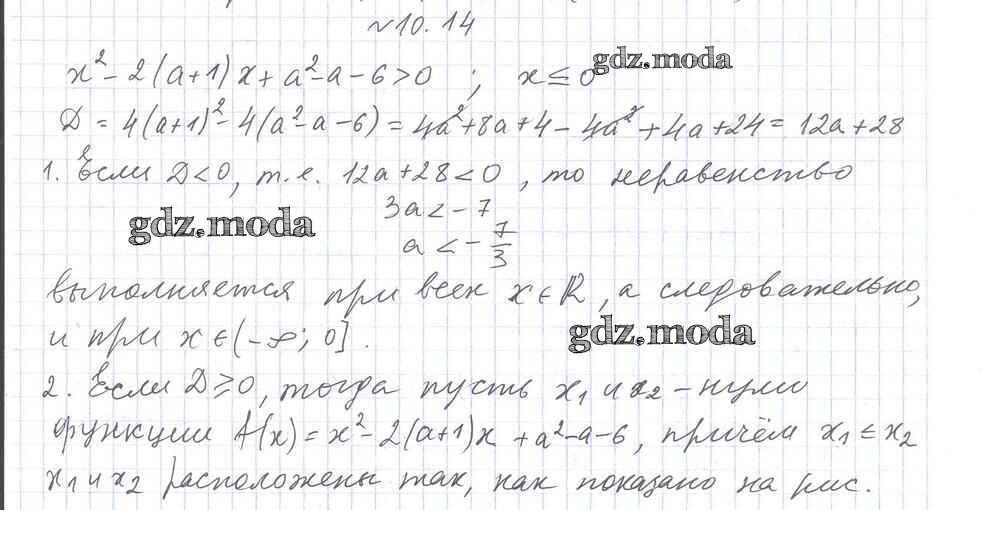 №10.14
x² - 2(a+1)x + a² - a - 6 > 0 ; x ≤ 0
gdz.moda
D = 4(a+1)² - 4(a² - a - 6) = 4a² + 8a + 4 - 4a² + 4a + 24 = 12a + 28
1. Если D < 0, т.е. 12a + 28 < 0, то неравенство
3a < -7
gdz.moda
a < -7/3
выполняется при всех x ∈ R, а следовательно,
и при x ∈ (-∞; 0].
gdz.moda
2. Если D ≥ 0, тогда пусть x₁ и x₂ - нули
функции f(x) = x² - 2(a+1)x + a² - a - 6, причём x₁ ≤ x₂
x₁ и x₂ расположены так, как показано на рис.